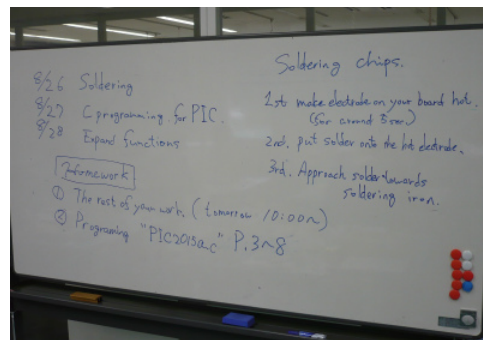 8/26 Soldering
8/27 C programming for PIC.
8/28 Expand functions
Homework
① The rest of your work. (tomorrow 10:00~)
② Programing "PIC2015a.c" P.3~8
Soldering chips.
1st. make electrode on your board hot.
(for around 5 sec)
2nd. put solder onto the hot electrode.
3rd. Approach solder towards
soldering iron.